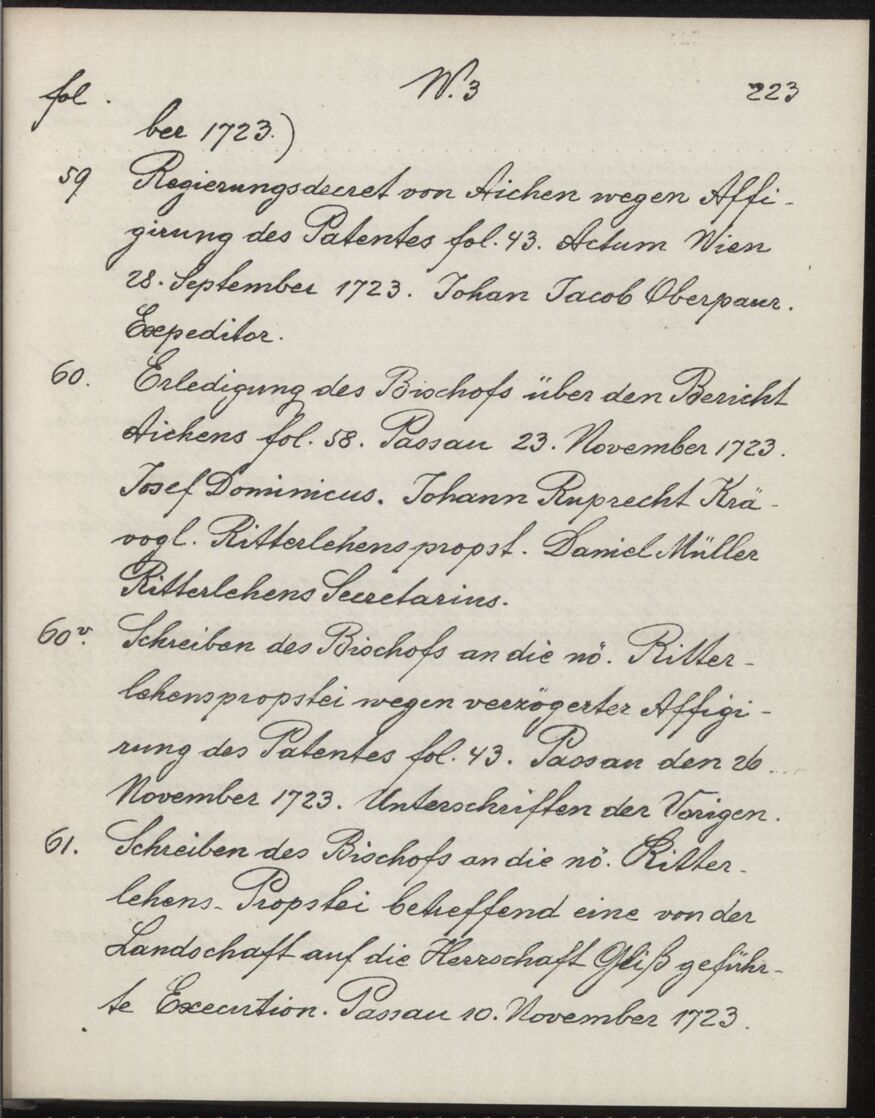 fol. N. 3 223
ber 1723.)
59 Regierungsdecret von Aichen wegen Affi-
girung des Patentes fol. 43. Actum Wien
28. September 1723. Johan Jacob Oberpaur.
Expeditor.
60. Erledigung des Bischofs über den Bericht
Aichens fol. 58. Passau 23. November 1723.
Josef Dominicus. Johann Ruprecht Krä-
vogl. Ritterlehenspropst. Daniel Müller
Ritterlehens Secretarius.
60v. Schreiben des Bischofs an die nö. Ritter-
lehenspropstei wegen verzögerter Affigi-
rung des Patentes fol. 43. Passau den 26
November 1723. Unterschriften der Vorigen.
61. Schreiben des Bischofs an die nö. Ritter-
lehens-Propstei betreffend eine von der
Landschaft auf die Herrschaft Gleiß geführ-
te Execution. Passau 10. November 1723.